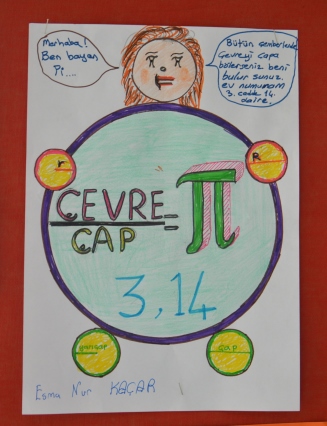 Merhaba!
Ben bayan
Pi....
Bütün çemberlerde
Çevreyi çapa
bölerseniz beni
bulursunuz.
ev numaram
3. cadde 14.
daire.
r
R
ÇEVRE
ÇAP
= π
3,14
yarıçap
çap
Esma Nur KAÇAR